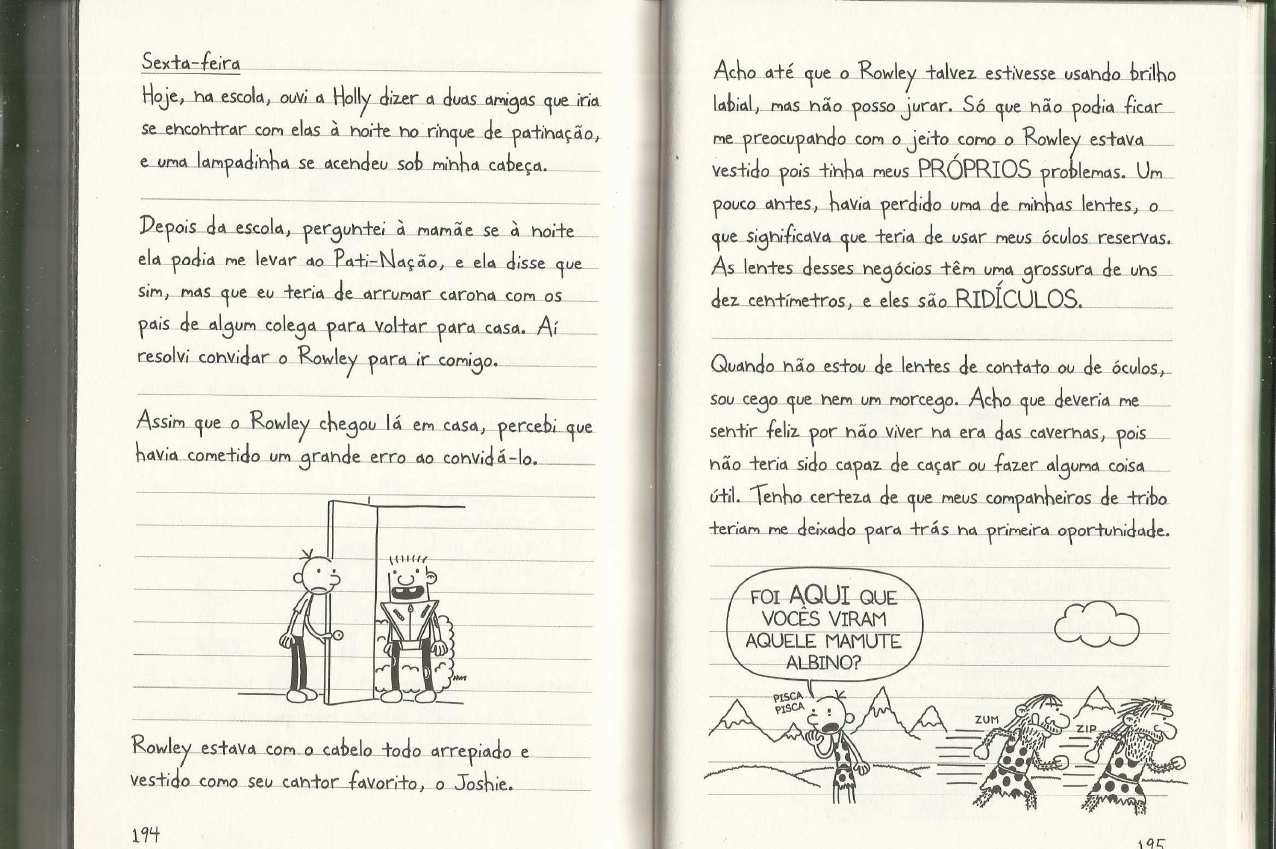 Sexta-feira
Hoje, na escola, ouvi a Holly dizer a duas amigas que iria
se encontrar com elas à noite no rinque de patinação,
e uma lampadinha se acendeu sob minha cabeça.
Depois da escola, perguntei à mamãe se à noite
ela podia me levar ao Pati-Nação, e ela disse que
sim, mas que eu teria de arrumar carona com os
pais de algum colega para voltar para casa. Aí
resolvi convidar o Rowley para ir comigo.
Assim que o Rowley chegou lá em casa, percebi que
havia cometido um grande erro ao convidá-lo.
Rowley estava com o cabelo todo arrepiado e
vestido como seu cantor favorito, o Joshie.
194
Acho até que o Rowley talvez estivesse usando brilho
labial, mas não posso jurar. Só que não podia ficar
me preocupando com o jeito como o Rowley estava
vestido pois tinha meus PRÓPRIOS problemas. Um
pouco antes, havia perdido uma de minhas lentes, o
que significava que teria de usar meus óculos reservas.
As lentes desses negócios têm uma grossura de uns
dez centímetros, e eles são RIDÍCULOS.
Quando não estou de lentes de contato ou de óculos,
sou cego que nem um morcego. Acho que deveria me
sentir feliz por não viver na era das cavernas, pois
não teria sido capaz de caçar ou fazer alguma coisa
útil. Tenho certeza de que meus companheiros de tribo
teriam me deixado para trás na primeira oportunidade.
FOI AQUI QUE
VOCÊS VIRAM
AQUELE MAMUTE
ALBINO?
PISCA
PISCA
ZUM
ZIP
195